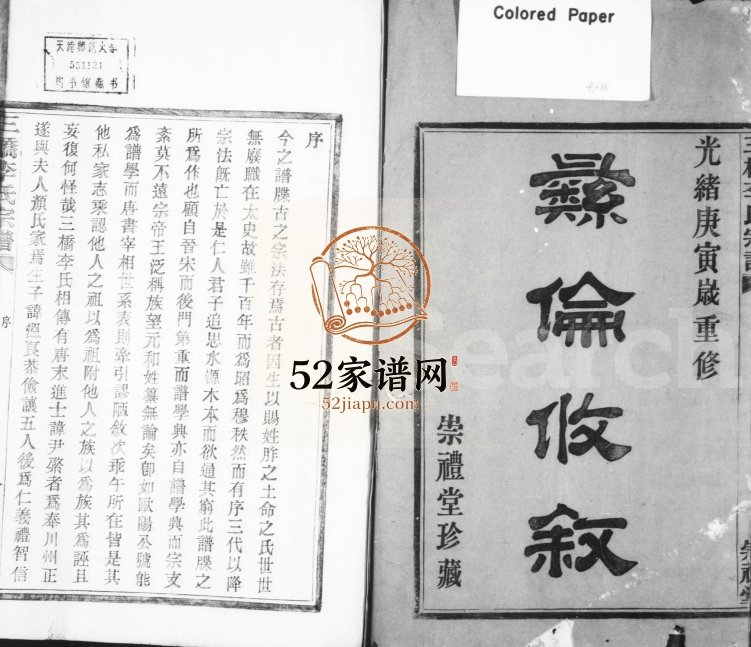 Colored Paper
光緒庚寅歲重修
彝倫攸敘
崇禮堂珍藏
圖书馆藏书
551121
序
今之譜牒古之宗法存焉古者因生以賜姓胙之土命之氏世世
無廢職在太史故雖千百年而爲昭爲穆秩然而有序三代以降
宗法既亡於是仁人君子追思水源木本而欲通其窮此譜牒之
所爲作也顧自晉宋而後門第重而譜學興亦自譜學興而宗支
紊莫不遠宗帝王泛稱族望元和姓纂無論矣卽如歐陽公號能
爲譜學而唐書宰相世系表則牽引謬陋敘次乖午所在皆是其
他私家志乘認他人之祖以爲祖附他人之族以爲族其爲誣且
妄復何怪哉三橋李氏相傳有唐末進士諱尹棻者爲奉川州正
遂與夫人顏氏家焉生子諱溫良恭儉讓五人後爲仁義禮智信
三橋李氏宗譜
序
52家谱网
52jiapu.com